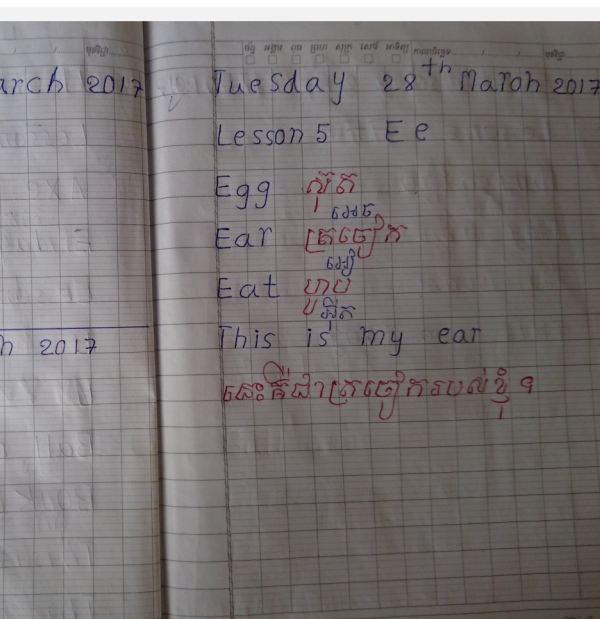 arch 2017
h 2017
Tuesday 28th March 2017
Lesson 5 Ee
Egg ស៊ុត
អេគ
Ear ត្រចៀក
អៀ
Eat ហូប
អ៊ីត
This is my ear
នេះគឺជាត្រចៀករបស់ខ្ញុំ ។